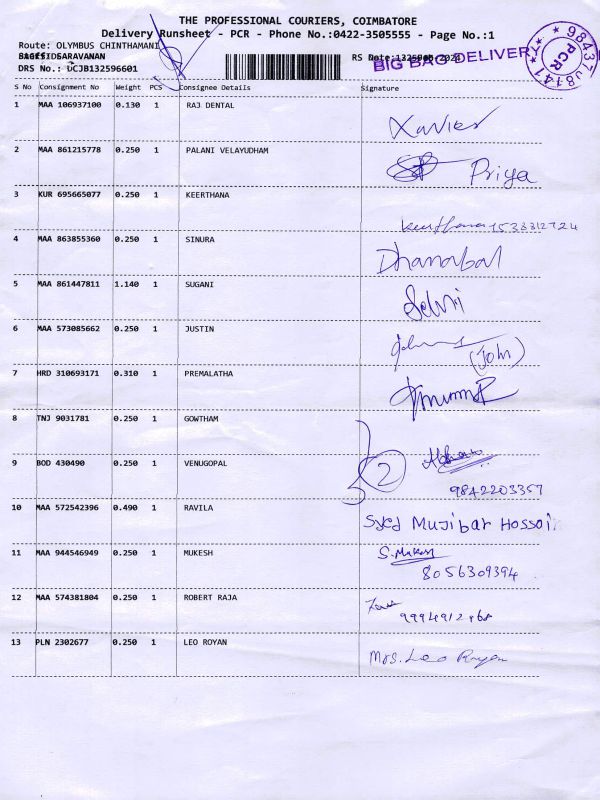 THE PROFESSIONAL COURIERS, COIMBATORE
Delivery Runsheet - PCR - Phone No.:0422-3505555 - Page No.:1
Route: OLYMBUS CHINTHAMANI
SARAVANAN RS Date:
DRS No.: UCJB132596601
BIG BAG DELIVERY
PCR
S No Consignment No Weight PCS Consignee Details Signature
1 MAA 106937100 0.130 1 RAJ DENTAL Xavier
2 MAA 861215778 0.250 1 PALANI VELAYUDHAM Priya
3 KUR 695665077 0.250 1 KEERTHANA Keerthana
4 MAA 863855360 0.250 1 SINURA Dhanabal
5 MAA 861447811 1.140 1 SUGANI Selvi
6 MAA 573085662 0.250 1 JUSTIN (John)
7 HRD 310693171 0.310 1 PREMALATHA
8 TNJ 9031781 0.250 1 GOWTHAM
9 BOD 430490 0.250 1 VENUGOPAL 2
9842203357
10 MAA 572542396 0.490 1 RAVILA Syed Mujibar Hossain
11 MAA 944546949 0.250 1 MUKESH S. Mukesh
8056309394
12 MAA 574381804 0.250 1 ROBERT RAJA
13 PLN 2302677 0.250 1 LEO ROYAN Mrs. Leo Royan